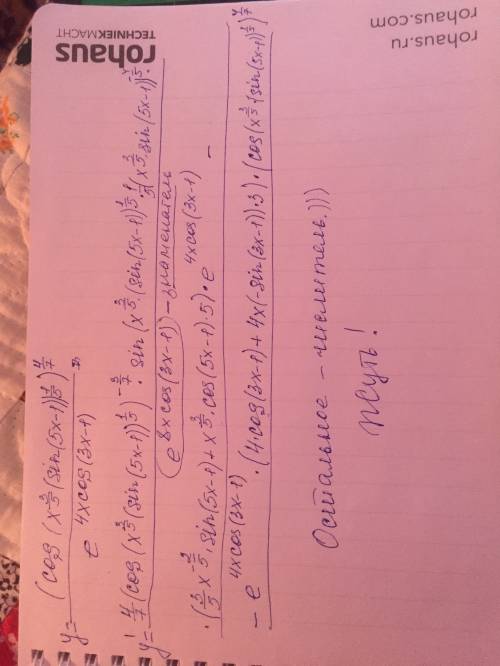 rohaus
TECHNIEKMACHT
rohaus.ru
rohaus.com
y = (cos(x^{3/5}(sin(5x-1))^{1/5}))^{4/7}
e^{4xcos(3x-1)}
y' = 4/7 (cos(x^{3/5}(sin(5x-1))^{1/5})^{-3/7} · sin(x^{3/5}·(sin(5x-1)^{1/5} · 1/5 (x^{3/5}·sin(5x-1))^{-4/5} ·
(e^{8xcos(3x-1)}) - знаменатель
· (3/5 x^{-2/5} · sin(5x-1) + x^{3/5} · cos(5x-1)·5) · e^{4xcos(3x-1)} -
- e^{4xcos(3x-1)} · (4·cos(3x-1) + 4x(-sin(3x-1))·3) · (cos(x^{3/5}·(sin(5x-1)^{1/5})^{4/7}
Остальное - числитель.)))
Жуть!